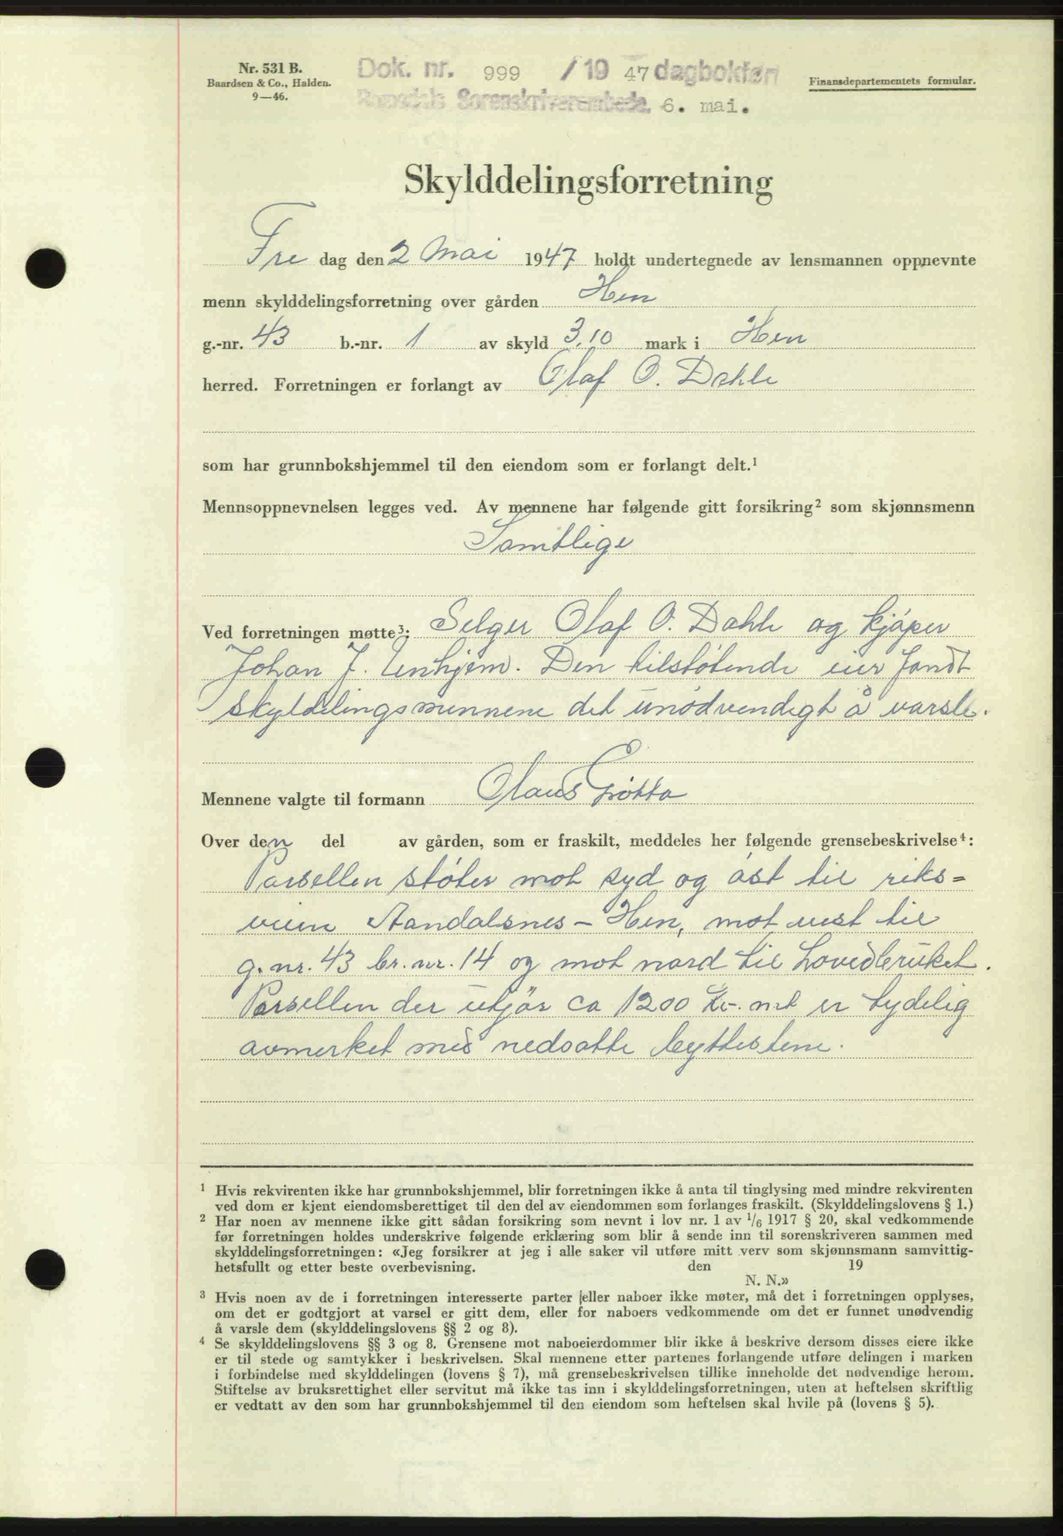 Nr. 531 B.
Baardsen & Co., Halden.
9—46.
Dok. nr. 999 /19 47 dagbokført
Romsdals Sorenskriverembede. 6. mai.
Finansdepartementets formular.
Skylddelingsforretning
Fre dag den 2 Mai 1947 holdt undertegnede av lensmannen oppnevnte
menn skylddelingsforretning over gården Hen
g.-nr. 43 b.-nr. 1 av skyld 3,10 mark i Hen
herred. Forretningen er forlangt av Olaf O. Dahle
som har grunnbokshjemmel til den eiendom som er forlangt delt.¹
Mennsoppnevnelsen legges ved. Av mennene har følgende gitt forsikring² som skjønnsmenn
Samtlige
Ved forretningen møtte³: Selger Olaf O. Dahle og kjøper
Johan J. Venhjem. Den tilstøtende eier fandt
skylddelingsmennene det unødvendigt å varsle.
Mennene valgte til formann Olaus Grøtta
Over den del av gården, som er fraskilt, meddeles her følgende grensebeskrivelse⁴:
Parsellen støter mot syd og øst til riks=
veien Aandalsnes – Hen, mot vest til
g. nr. 43 br. nr. 14 og mot nord til Hovedbruket.
Parsellen der utgjør ca 1200 kv. mt er tydelig
avmerket med nedsatte byttestene.
¹ Hvis rekvirenten ikke har grunnbokshjemmel, blir forretningen ikke å anta til tinglysing med mindre rekvirenten
ved dom er kjent eiendomsberettiget til den del av eiendommen som forlanges fraskilt. (Skylddelingslovens § 1.)
² Har noen av mennene ikke gitt sådan forsikring som nevnt i lov nr. 1 av 1/6 1917 § 20, skal vedkommende
før forretningen holdes underskrive følgende erklæring som blir å sende inn til sorenskriveren sammen med
skylddelingsforretningen: «Jeg forsikrer at jeg i alle saker vil utføre mitt verv som skjønnsmann samvittig-
hetsfullt og etter beste overbevisning. den 19
N. N.»
³ Hvis noen av de i forretningen interesserte parter (eller naboer ikke møter, må det i forretningen opplyses,
om det er godtgjort at varsel er gitt dem, eller for naboers vedkommende om det er funnet unødvendig
å varsle dem (skylddelingslovens §§ 2 og 8).
⁴ Se skylddelingslovens §§ 3 og 8. Grensene mot naboeierdommer blir ikke å beskrive dersom disses eiere ikke
er til stede og samtykker i beskrivelsen. Skal mennene etter partenes forlangende utføre delingen i marken
i forbindelse med skylddelingen (lovens § 7), må grensebeskrivelsen tillike inneholde det nødvendige herom.
Stiftelse av bruksrettighet eller servitut må ikke tas inn i skylddelingsforretningen, uten at heftelsen skriftlig
er vedtatt av den som har grunnbokshjemmel til den eiendom som heftelsen skal hvile på (lovens § 5).